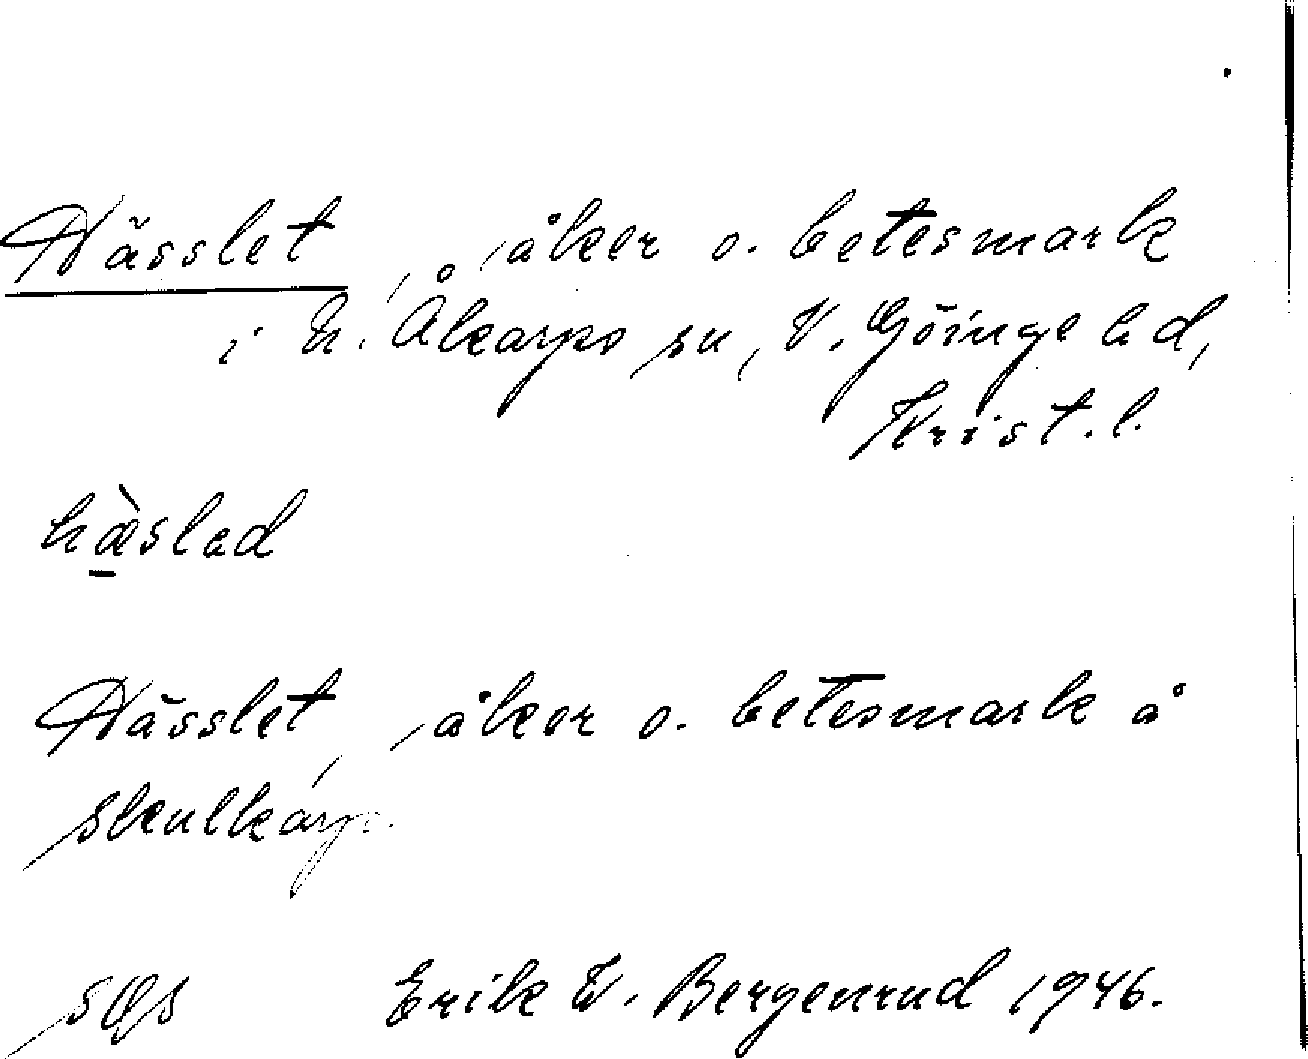 Hässlet, åker o. betesmark
i N. Åkarps sn, V. Göinge hd,
Krist. l.
hæ̀slad
Hässlet, åker o. betesmark å
Skulkarp.
Erik W. Bergenrud 1946.